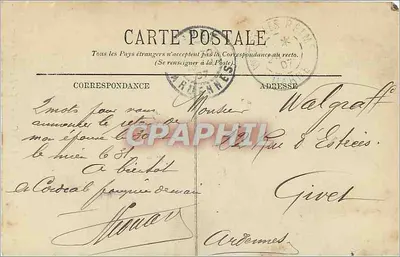 CARTE POSTALE
Tous les Pays étrangers n'acceptent pas la Correspondance au recto.
(Se renseigner à la Poste).
CORRESPONDANCE
ADRESSE
2 mots pour vous
annoncer le retour de
mon épouse le 30
le mien le 31
A bientôt
et Cordiale poignée de main
Monsieur Walgraffe
Rue d'Estrées
Givet
Ardennes
ARDENNES
07
CPAPHIL